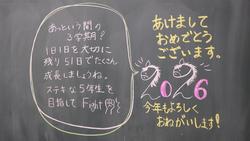 あっという間の
3学期?
1日1日を大切に
残り51日でたくさん
成長しましょうね。
ステキな5年生を
目指して Fight
あけまして
おめでとう
ございます。
2026
今年もよろしく
おねがいします!